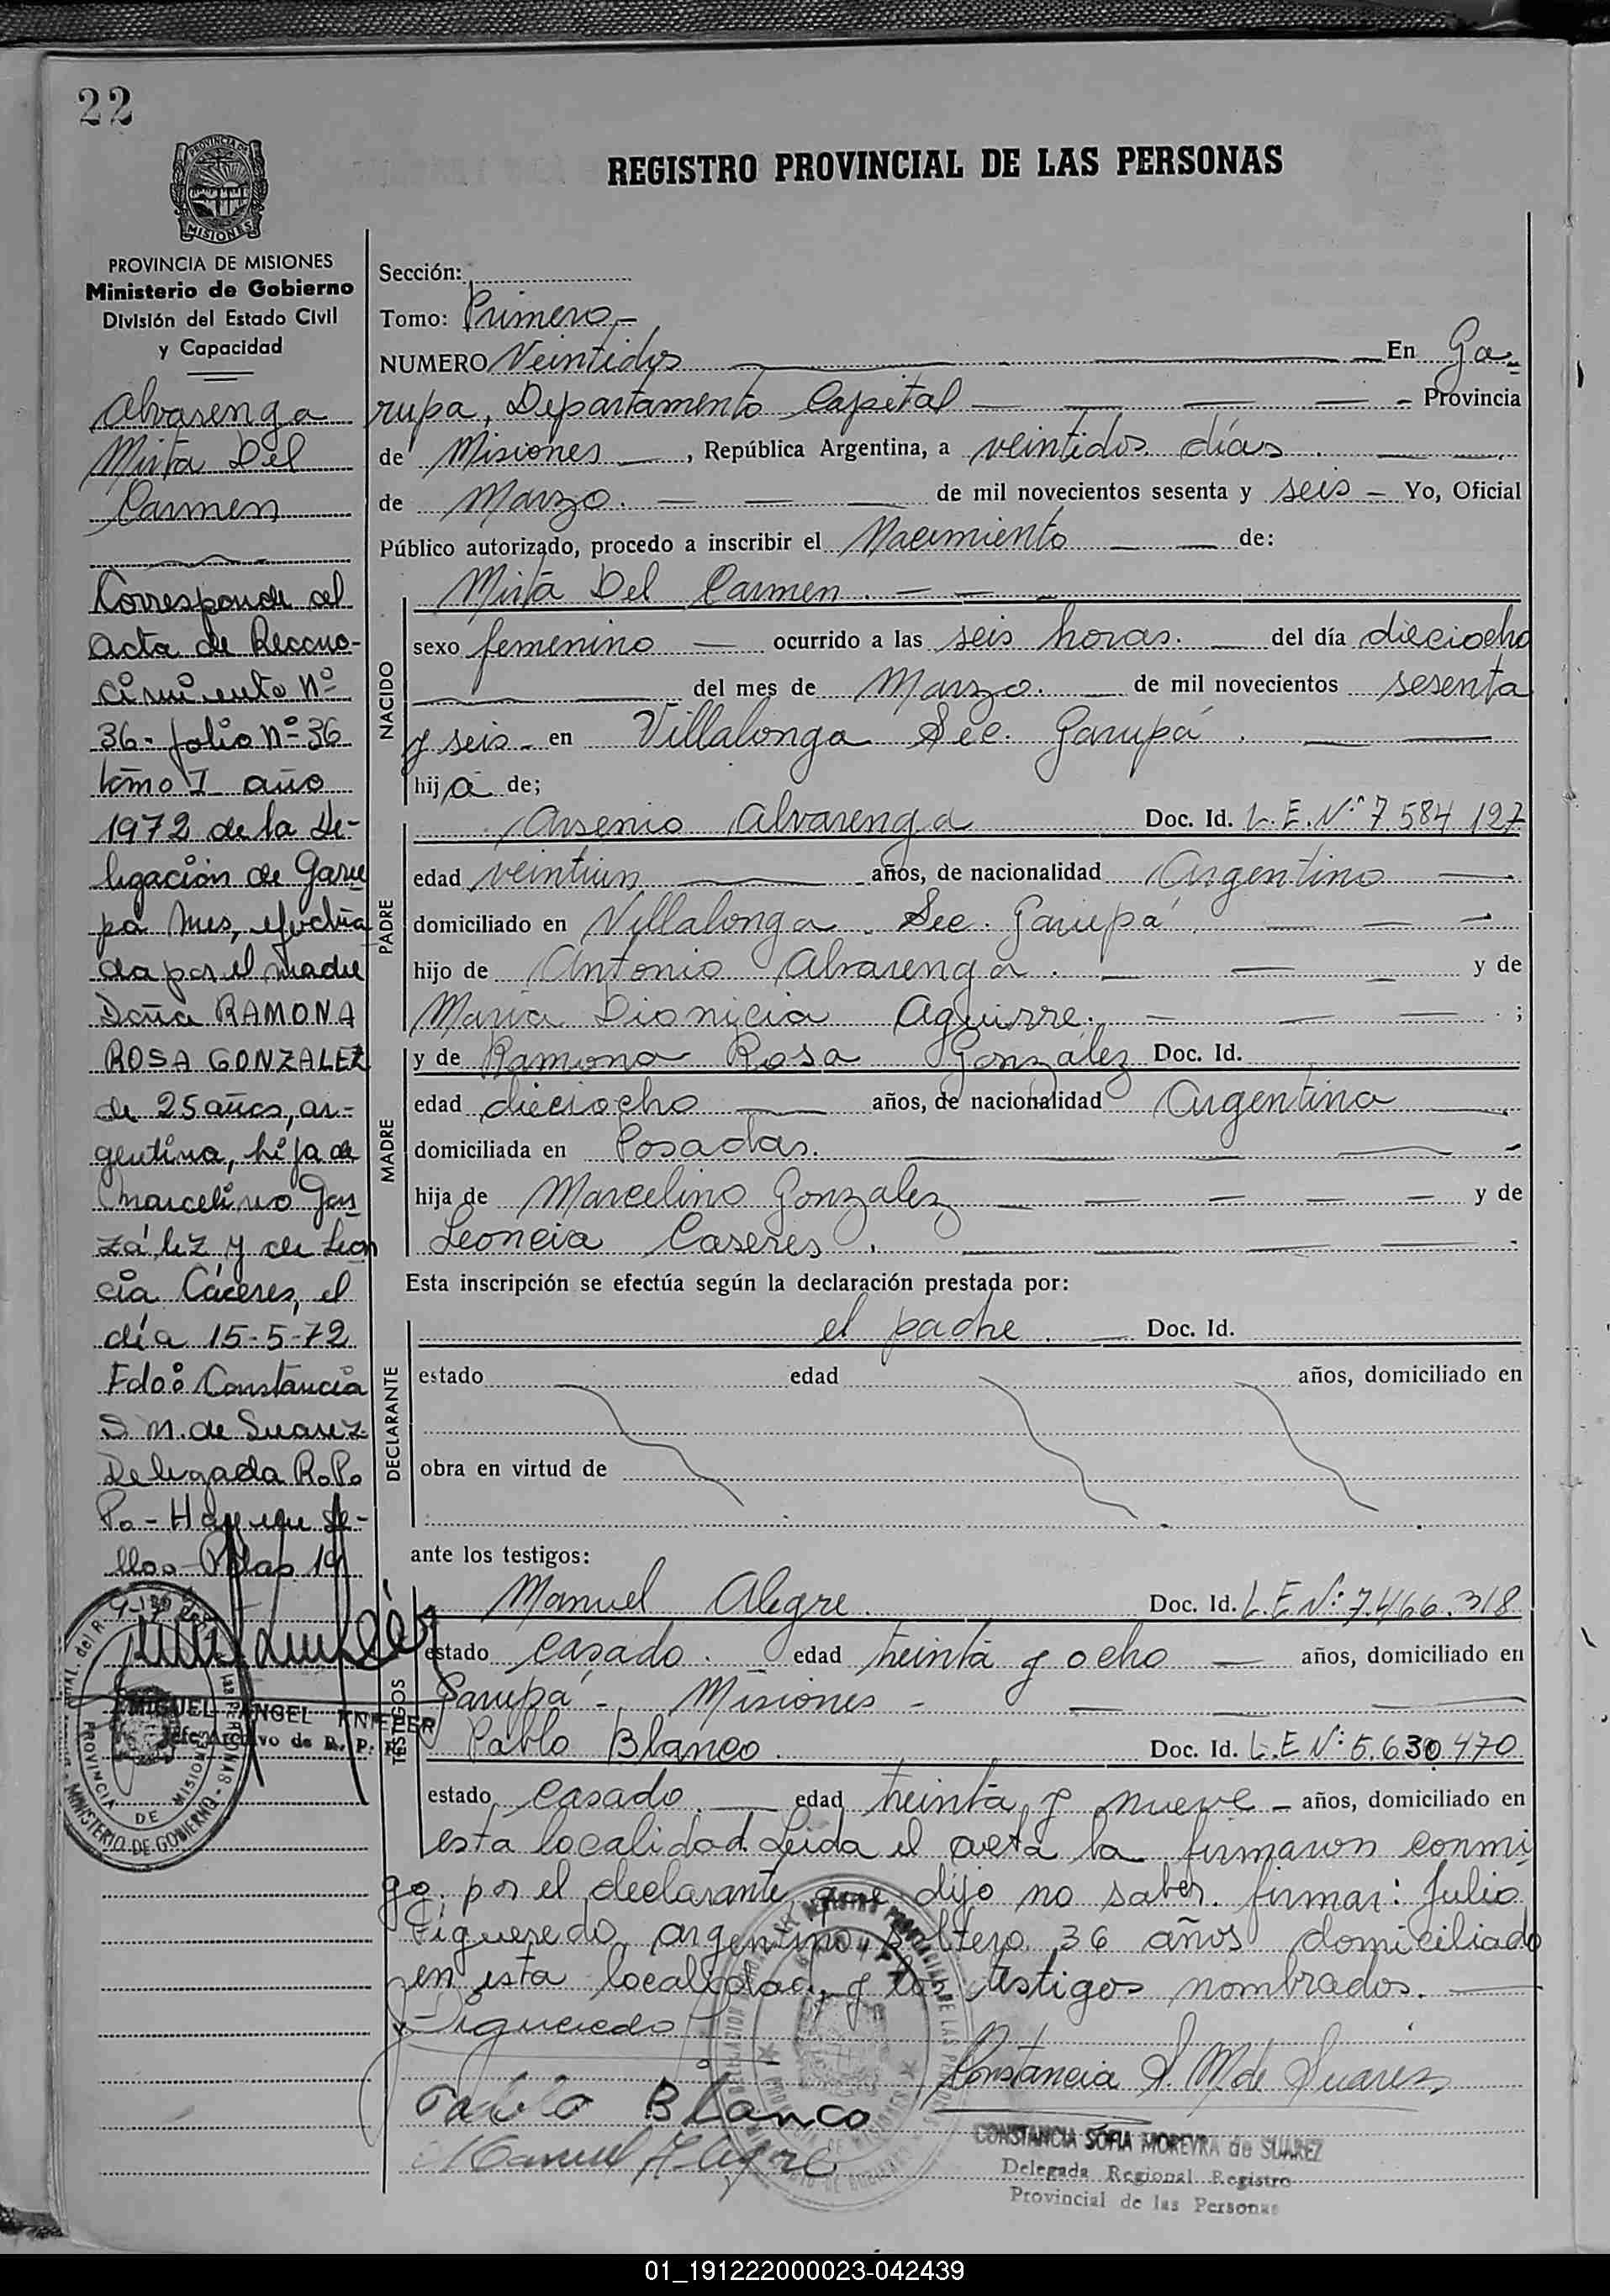 22
PROVINCIA DE
MISIONES
REGISTRO PROVINCIAL DE LAS PERSONAS
PROVINCIA DE MISIONES
Ministerio de Gobierno
División del Estado Civil
y Capacidad
Alvarenga
Mirta Del
Carmen
Corresponde al
Acta de Recono-
cimiento Nº
36- folio Nº 36
tomo I año
1972 de la De-
legación de Garu
pá Mnes, efectua
da por el madre
Doña RAMONA
ROSA GONZALEZ
de 25 años, ar-
gentina, hija de
Marcelino Gon
zález y de Leon
cia Cáceres, el
día 15-5-72
Fdo: Constancia
S M. de Suarez
Delegada R.P.
P.- Hay un Se-
llo.- Pdas 19
MIGUEL ANGEL
Jefe Archivo de R. P. P.
PROVINCIA DE MISIONES
MINISTERIO DE GOBIERNO
Sección:
Tomo: Primero.-
NUMERO Veintidos En Ga-
rupa, Departamento Capital - Provincia
de Misiones, República Argentina, a veintidos días
de Marzo. de mil novecientos sesenta y seis - Yo, Oficial
Público autorizado, procedo a inscribir el Nacimiento de:
NACIDO
Mirta Del Carmen.
sexo femenino ocurrido a las seis horas. del día dieciocho
del mes de Marzo. de mil novecientos sesenta
y seis - en Villalonga Sec. Garupá.
hija de;
PADRE
Arsenio Alvarenga Doc. Id. L.E. Nº 7.584.127
edad veintiun años, de nacionalidad Argentino
domiciliado en Villalonga. Sec. Garupá
hijo de Antonio Alvarenga. y de
Maria Dionicia Aguirre. ;
MADRE
y de Ramona Rosa González Doc. Id.
edad dieciocho años, de nacionalidad Argentina
domiciliada en Posadas.
hija de Marcelino Gonzalez y de
Leoncia Caseres.
Esta inscripción se efectúa según la declaración prestada por:
DECLARANTE
el padre. Doc. Id.
estado edad años, domiciliado en
obra en virtud de
ante los testigos:
TESTIGOS
Manuel Alegre. Doc. Id. L.E Nº: 7.466.318
estado casado. edad treinta y ocho años, domiciliado en
Garupá - Misiones -
Pablo Blanco. Doc. Id. L.E Nº: 5.630.470
estado casado. edad treinta y nueve - años, domiciliado en
esta localidad. Leida el acta la firmaron conmi
go, por el declarante, que dijo no saber firmar: Julio
Figueredo, argentino, soltero, 36 años domiciliado
en esta localidad, y los testigos nombrados.
Figueredo
Constancia S. M. de Suarez
Pablo Blanco
Manuel Alegre
CONSTANCIA SOFIA MOREYRA de SUAREZ
Delegada Regional Registro
Provincial de las Personas
01_191222000023-042439